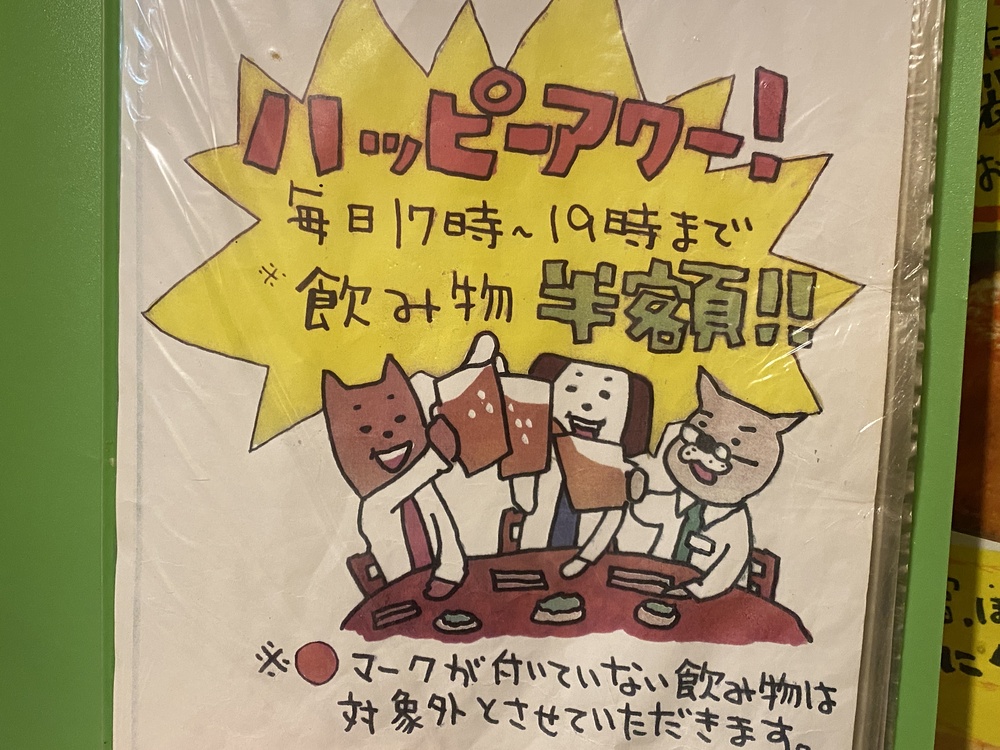 ハッピーアワー!
毎日17時~19時まで
※飲み物 半額!!
※●マークが付いていない飲み物は
対象外とさせていただきます。